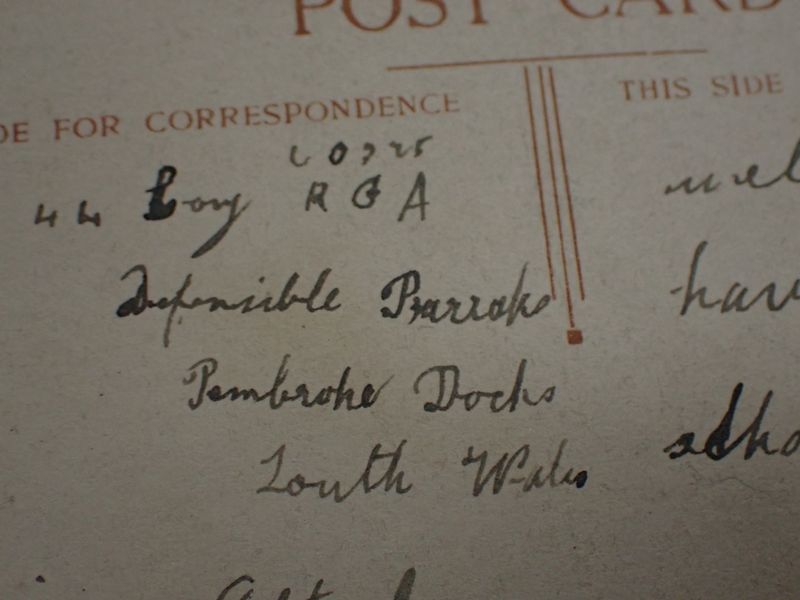 POST CARD
DE FOR CORRESPONDENCE
THIS SIDE
44 Coy R G A
Defensible Barraks
Pembroke Docks
South Wales